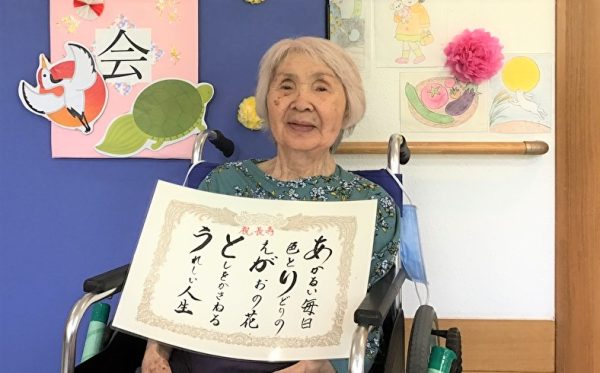 会
祝長寿
あかるい毎日
色とりどりの
えがおの花
としをかさねる
うれしい人生